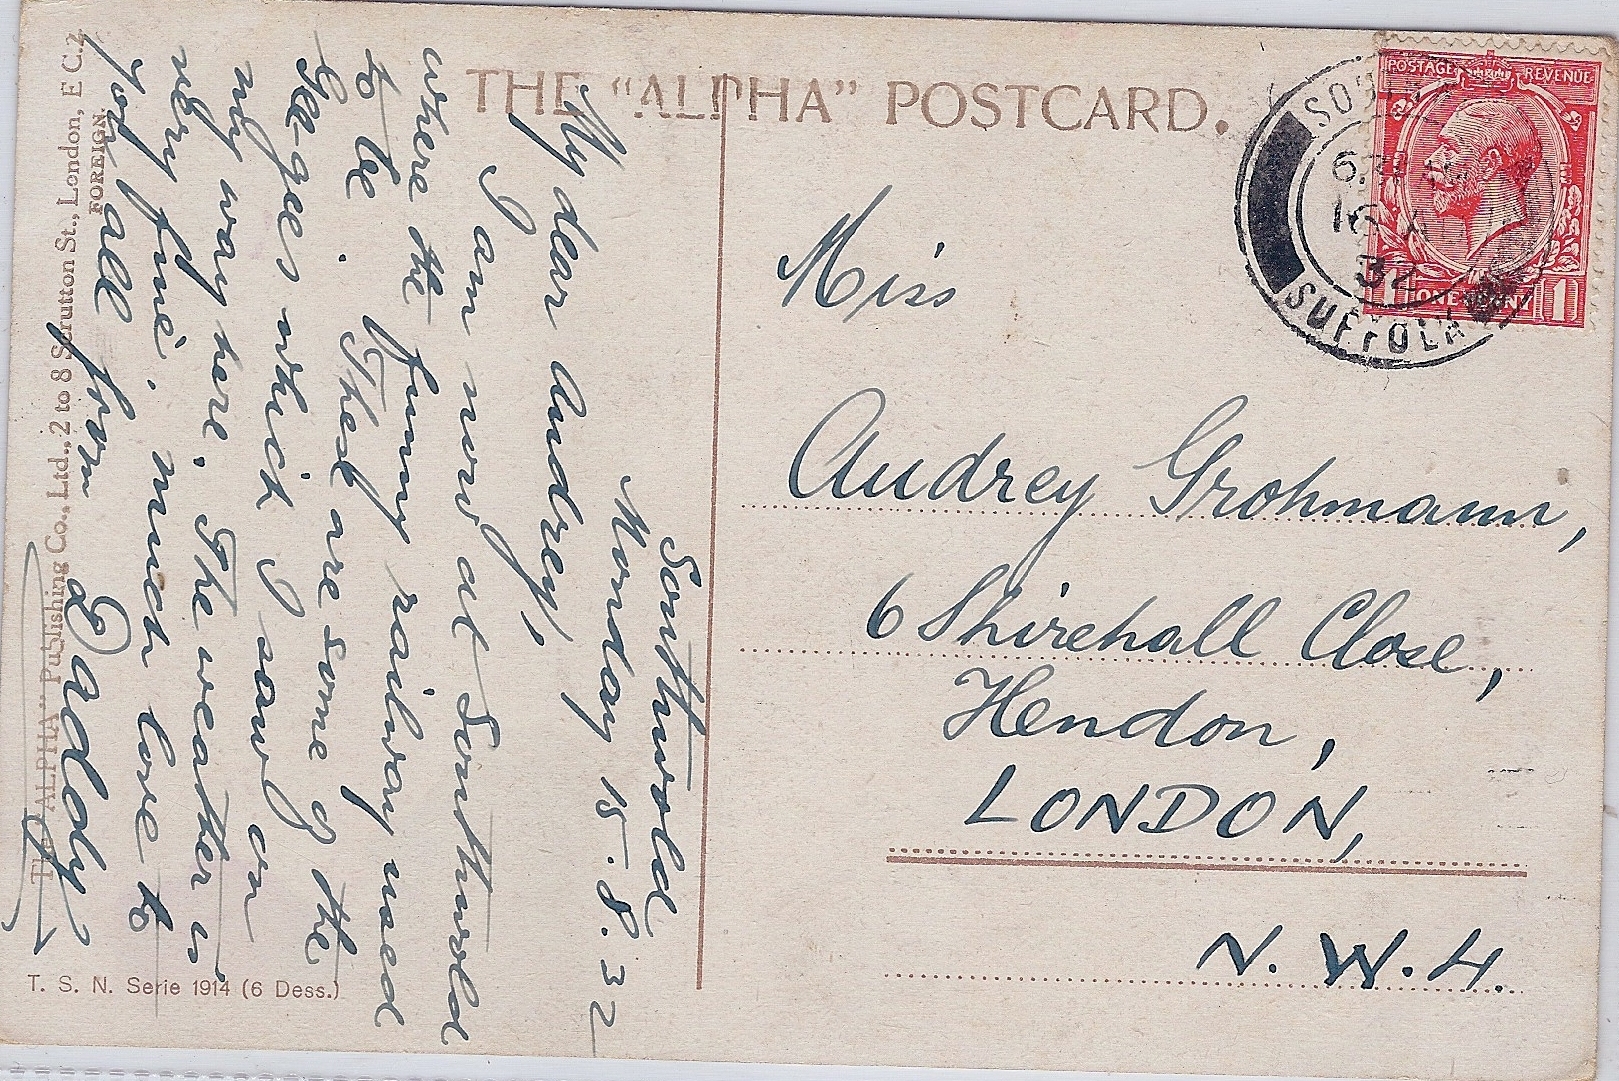 THE "ALPHA" POSTCARD.
Southwold
Monday 15.8.32
My dear Audrey,
I am now at Southwold
where the funny railway used
to be. These are some of the
Gee-gees which I saw on
my way here. The weather is
very fine. Much love to
you all from Daddy
The "ALPHA" Publishing Co., Ltd., 2 to 8 Scrutton St., London, E C.2
FOREIGN.
T. S. N. Serie 1914 (6 Dess.)
POSTAGE REVENUE
1 ONE PENNY 1
SUFFOLK
32
Miss
Audrey Grohmann,
6 Shirehall Close,
Hendon,
LONDON,
N.W.4.